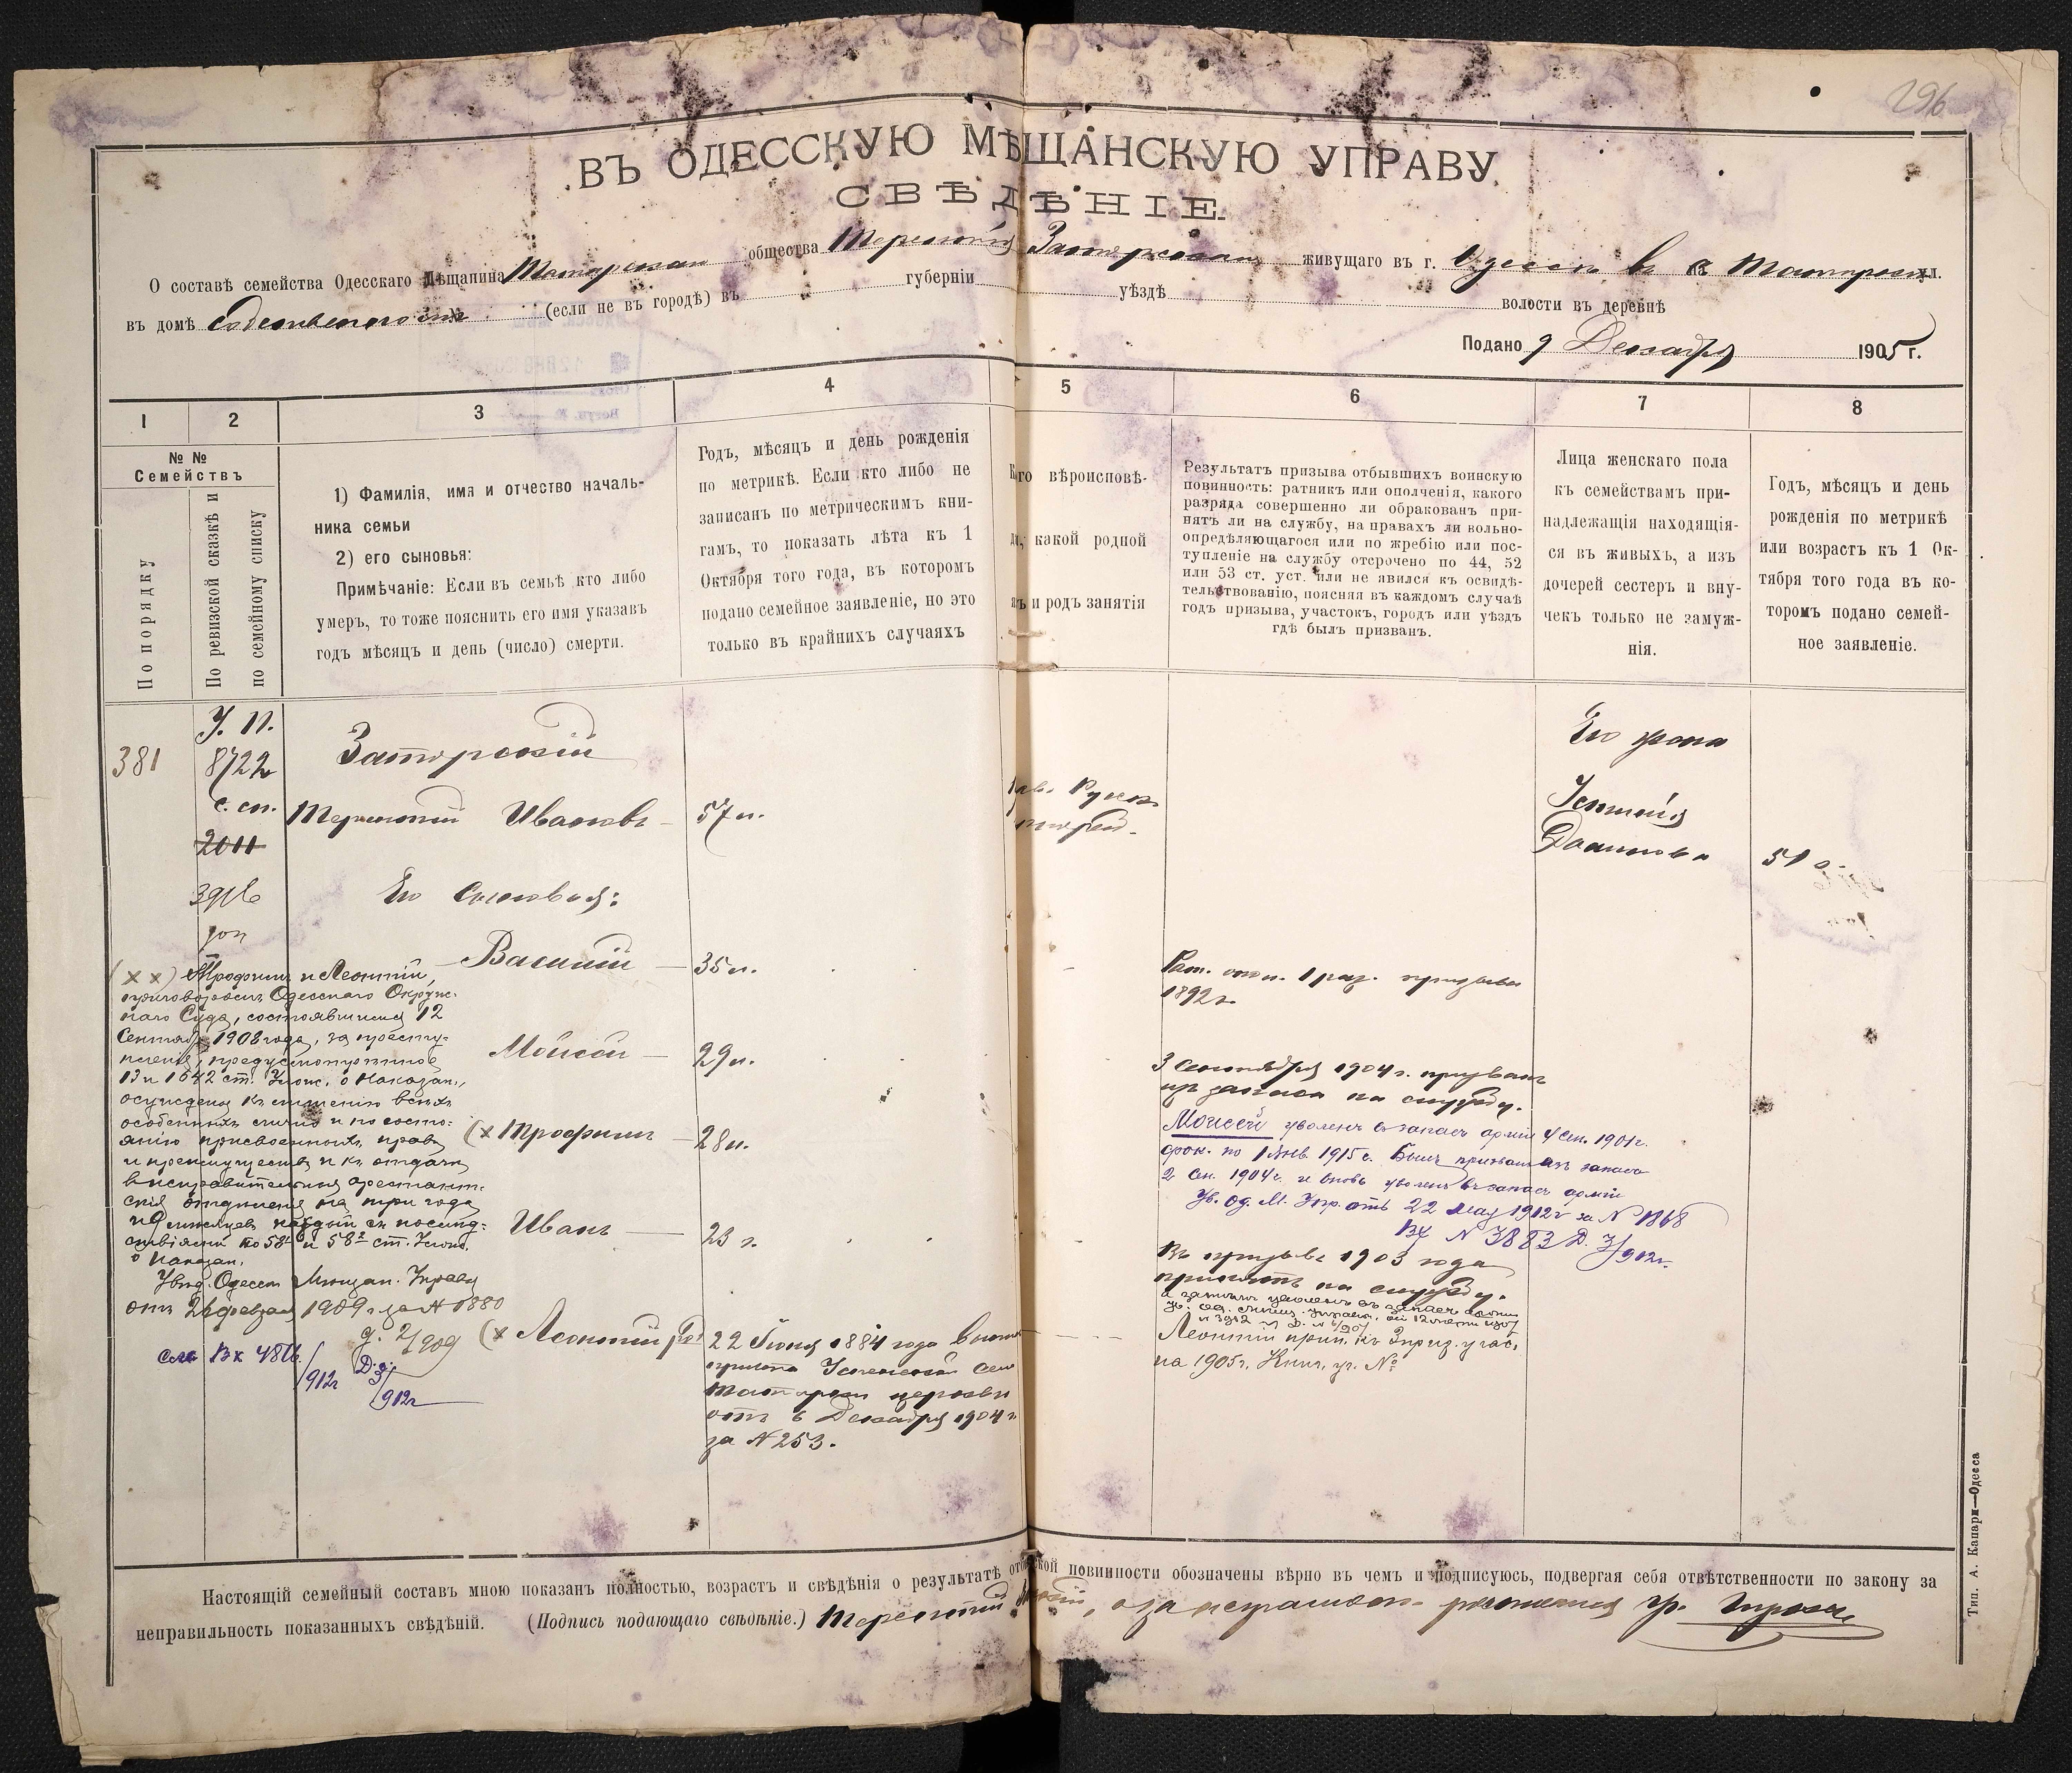 296
ВЪ ОДЕССКУЮ МѢЩАНСКУЮ УПРАВУ
СВѢДѢНІЕ.
О составѣ семейства Одесскаго Мѣщанина Татарскаго общества Терентія Заторскаго живущаго въ г. Одессѣ в с. Татарскѣ ул.
въ домѣ Собственномъ (если не въ городѣ) въ губерніи уѣздѣ волости въ деревнѣ
Подано 9 Декабря 1905 г.
1
2
3
4
5
6
7
8
№ №
Семействъ
По порядку
По ревизской сказкѣ и
по семейному списку
1) Фамилія, имя и отчество началь-
ника семьи
2) его сыновья:
Примѣчаніе: Если въ семьѣ кто либо
умеръ, то тоже пояснить его имя указавъ
годъ мѣсяцъ и день (число) смерти.
Годъ, мѣсяцъ и день рожденія
по метрикѣ. Если кто либо не
записанъ по метрическимъ кни-
гамъ, то показать лѣта къ 1
Октября того года, въ которомъ
подано семейное заявленіе, но это
только въ крайнихъ случаяхъ
го вѣроисповѣ-
какой родной
и родъ занятія
Результатъ призыва отбывшихъ воинскую
повинность: ратникъ или ополченія, какого
разряда совершенно ли обракованъ при-
нятъ ли на службу, на правахъ ли вольно-
опредѣляющагося или по жребію или пос-
тупленіе на службу отсрочено по 44, 52
или 53 ст. уст. или не явился къ освидѣ-
тельствованію, поясняя въ каждомъ случаѣ
годъ призыва, участокъ, городъ или уѣздъ
гдѣ былъ призванъ.
Лица женскаго пола
къ семействамъ при-
надлежащія находящія-
ся въ живыхъ, а изъ
дочерей сестеръ и вну-
чекъ только не замуж-
нія.
Годъ, мѣсяцъ и день
рожденія по метрикѣ
или возрастъ къ 1 Ок-
тября того года въ ко-
торомъ подано семей-
ное заявленіе.
381
У. П.
8722
с. сп.
2011
391б
доп
Заторскій
Терентій Ивановъ — 57 л.
Прав. Русск.
Его жена
51 г.
Его сыновья:
Василій — 35 л.
Рат. опол. 1 раз. призыва
1892 г.
Моисей — 29 л.
3 Сентября 1904 г. призванъ
изъ запаса на службу.
Моисей уволенъ въ запасъ арміи 4 Сен. 1901 г.
срок. по 1 Янв. 1915 г. Былъ призванъ изъ запаса
2 Сен. 1904 г. и вновь уволенъ въ запасъ арміи
Ув. Од. М. Упр. отъ 22 мая 1912 г за N 1868
Вх N 3883 Д. 3/912 г.
(х Трофимъ — 28 л.
Иванъ — 23 г.
Въ призывѣ 1903 года
принятъ на службу.
а затѣмъ уволенъ въ запасъ арміи
(х Леонтій
22 Іюня 1884 года
Успенской
церкви
отъ 6 Декабря 1904 г.
за N 253.
Леонтій прип. къ 3 приз. учас.
на 1905 г. Книг. уч. №
(х х) Трофимъ и Леонтій,
приговоромъ Одесскаго Окруж-
наго Суда, состоявшимся 12
Сентября 1908 года, за престу-
пленіе, предусмотрѣнное
13 и 1642 ст. Улож. о Наказан.,
осуждены къ лишенію всѣхъ
особенныхъ лично и по состо-
янію присвоенныхъ правъ
и преимуществъ и къ отдачѣ
въ исправительныя арестант-
скія отдѣленія на три года
каждый съ послѣд-
ствіями по 58¹ и 58² ст. Улож.
о Наказан.
Увѣд. Одесск Мѣщан. Управы
отъ 26 февраля 1909 г. за N 1880
д. 2/909
см Вх 486/912 г
Д. 3/912 г
Настоящій семейный составъ мною показанъ полностью, возрастъ и свѣдѣнія о результатѣ отб ской повинности обозначены вѣрно въ чемъ и подписуюсь, подвергая себя отвѣтственности по закону за
неправильность показанныхъ свѣдѣній. (Подпись подающаго свѣдѣніе.) Терентій
Тип. А. Капари—Одесса